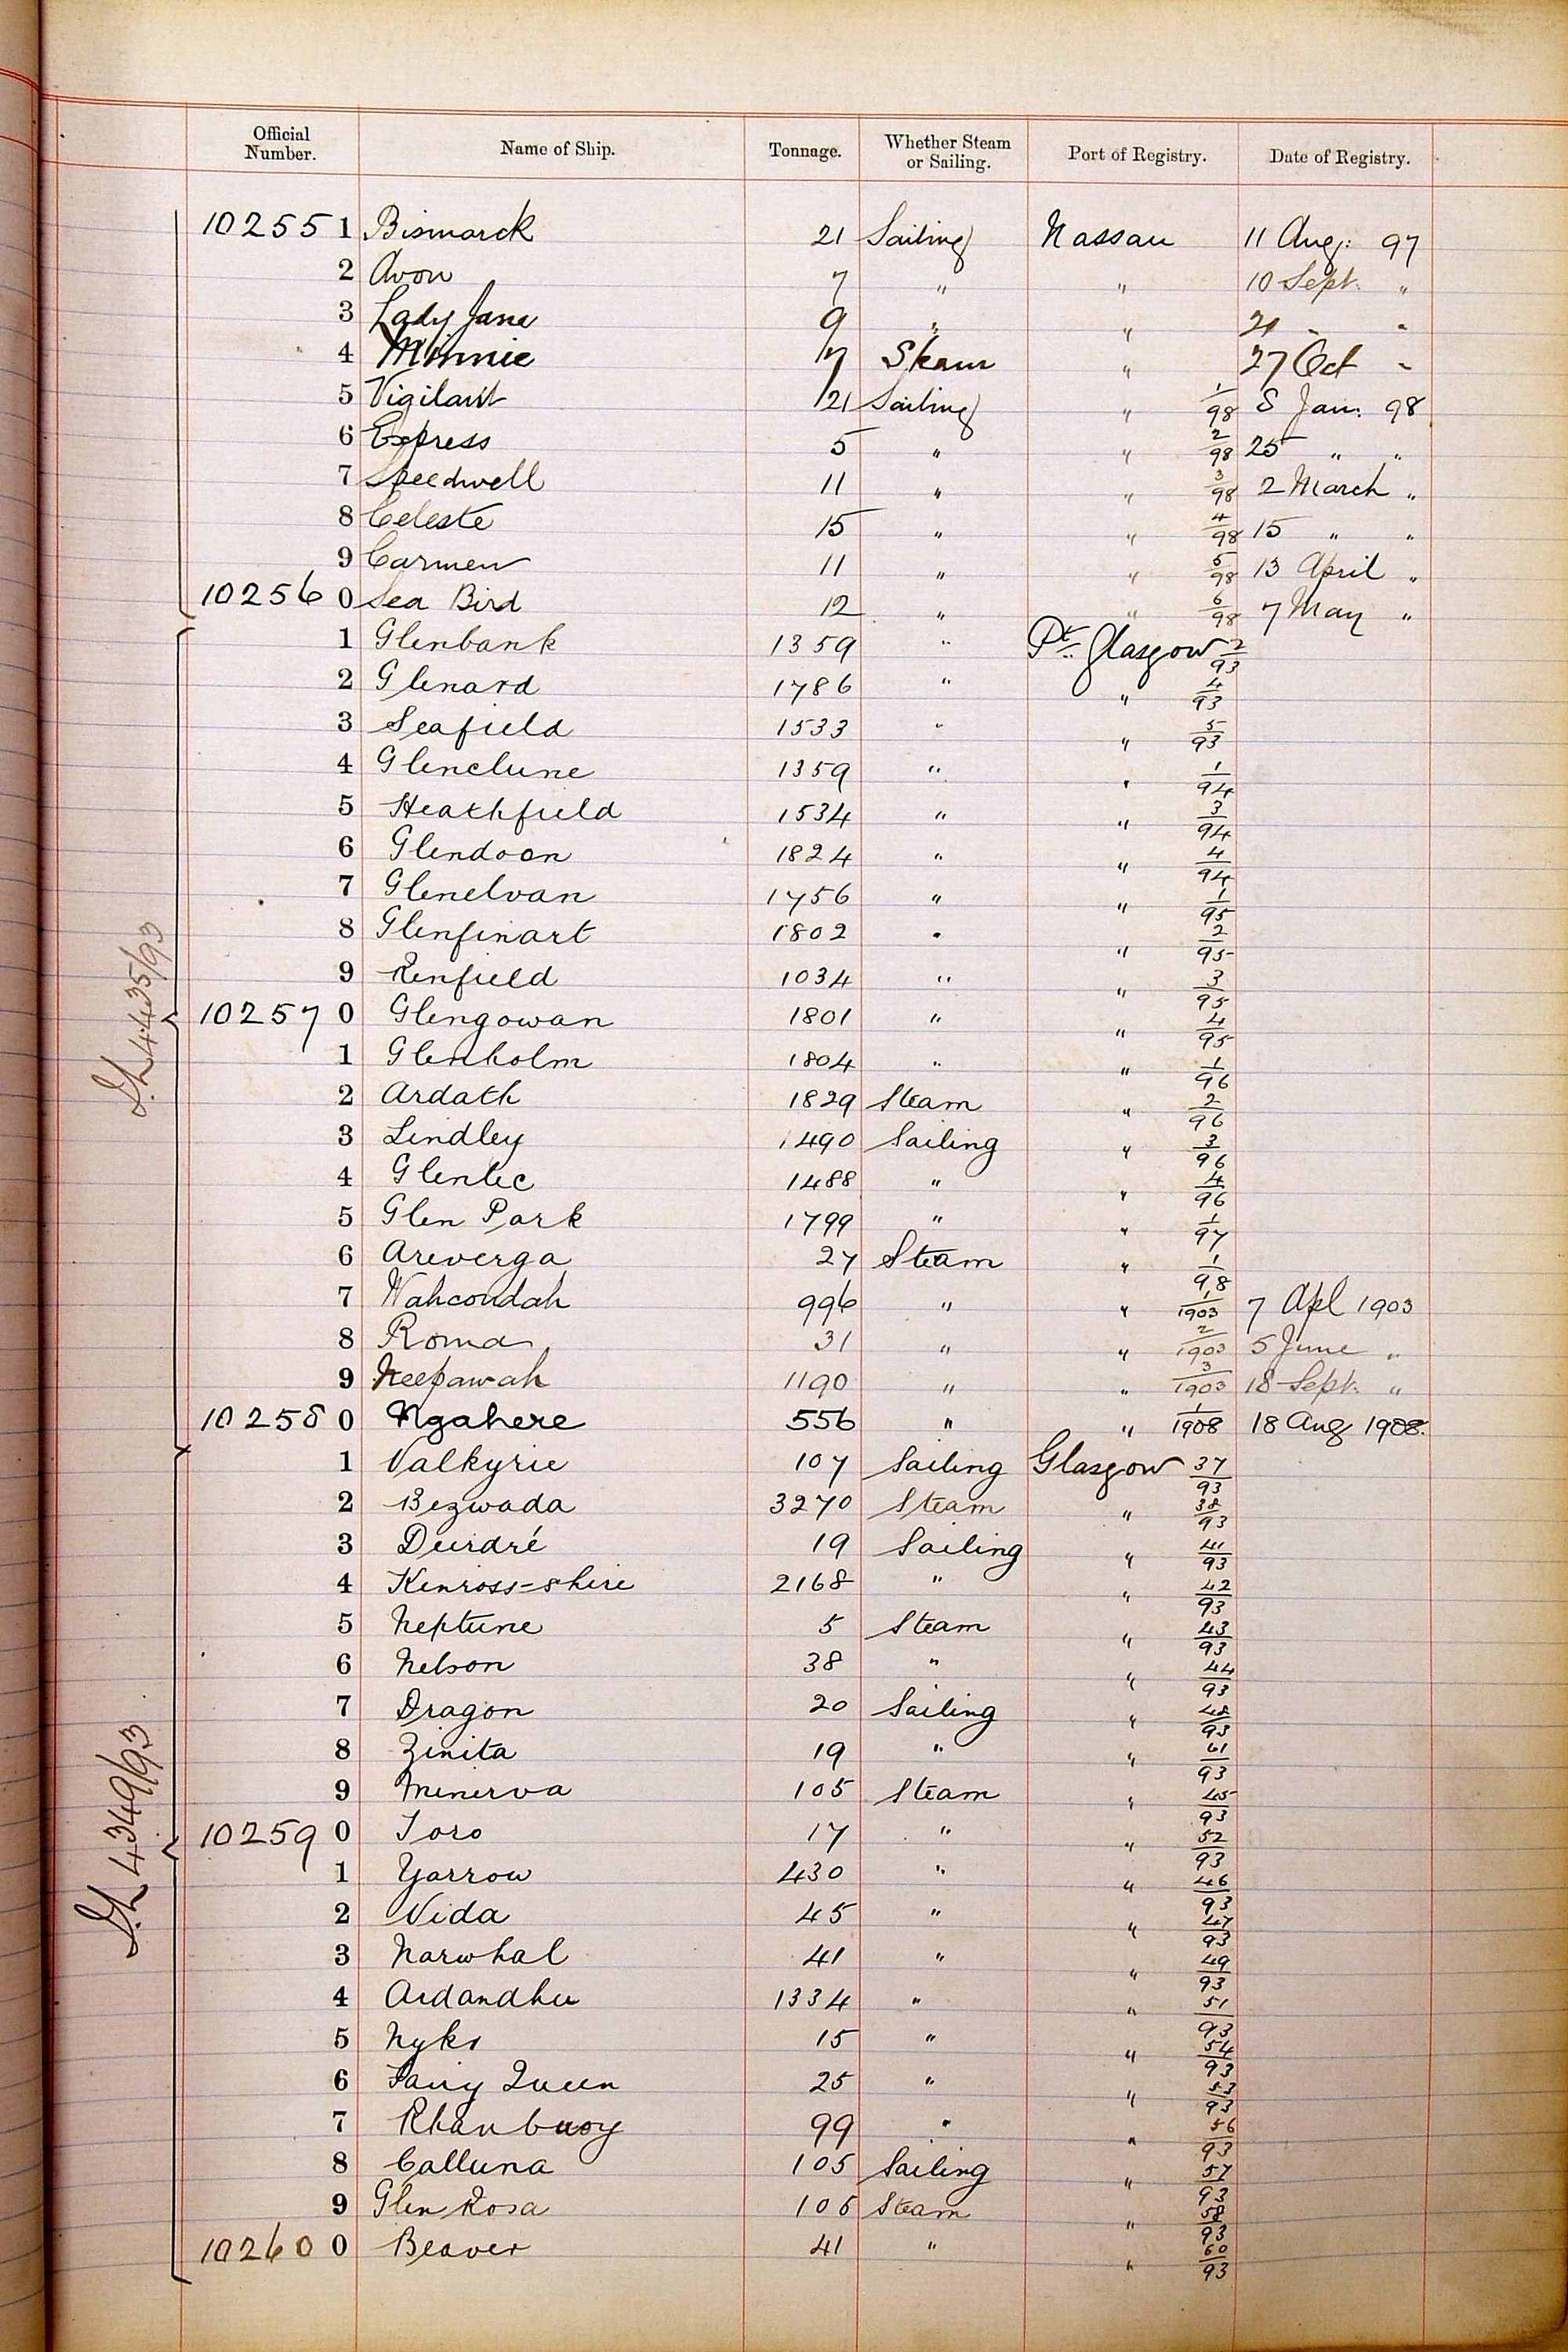 Official Number. Name of Ship. Tonnage. Whether Steam or Sailing. Port of Registry. Date of Registry.
10255 1 Bismarck 21 Sailing Nassau 11 Aug: 97
2 Avon 7 " " 10 Sept. "
3 Lady Jane 9 " " 21 " "
4 Minnie 17 Steam " 27 Oct "
5 Vigilant 121 Sailing " 1/98 8 Jan: 98
6 Express 5 " " 2/98 25 " "
7 Speedwell 11 " " 3/98 2 March "
8 Celeste 15 " " 4/98 15 " "
9 Carmen 11 " " 5/98 13 April "
10256 0 Sea Bird 12 " " 6/98 7 May "
1 Glenbank 1359 " Pt. Glasgow 2/93
2 Glenard 1786 " " 4/93
3 Seafield 1533 " " 5/93
4 Glenclune 1359 " " 1/94
5 Heathfield 1534 " " 3/94
6 Glendoon 1824 " " 4/94
7 Glenelvan 1756 " " 1/95
8 Glenfinart 1802 " " 2/95
9 Renfield 1034 " " 3/95
10257 0 Glengowan 1801 " " 4/95
1 Glenholm 1804 " " 1/96
2 Ardath 1829 Steam " 2/96
3 Lindley 1490 Sailing " 3/96
4 Glenlec 1488 " " 4/96
5 Glen Park 1799 " " 1/97
6 Areverga 27 Steam " 1/98
7 Wahcondah 996 " " 1/1903 7 Apl 1903
8 Roma 31 " " 2/1903 5 June "
9 Neepawah 1190 " " 3/1903 18 Sept. "
10258 0 Ngahere 556 " " 1/1908 18 Aug 1908.
1 Valkyrie 107 Sailing Glasgow 37/93
2 Bezwada 3270 Steam " 38/93
3 Deirdré 19 Sailing " 41/93
4 Kinross-shire 2168 " " 42/93
5 Neptune 5 Steam " 43/93
6 Nelson 38 " " 44/93
7 Dragon 20 Sailing " 48/93
8 Zinita 19 " " 61/93
9 Minerva 105 Steam " 45/93
10259 0 Toro 17 " " 52/93
1 Yarrow 430 " " 46/93
2 Vida 45 " " 47/93
3 Narwhal 41 " " 49/93
4 Ardandhu 1334 " " 51/93
5 15 " " 54/93
6 Fairy Queen 25 " " 53/93
7 Rhanbuoy 99 " " 56/93
8 Calluna 105 Sailing " 57/93
9 Glen Rosa 106 Steam " 58/93
10260 0 Beaver 41 " " 60/93
4435/93
4349/93